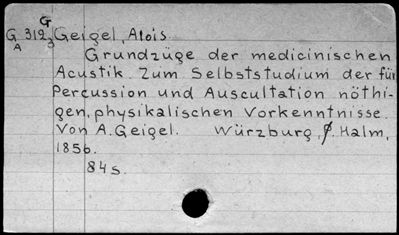 G
G 312 Geigel, Alois.
A 3
Grundzüge der medicinischen
Acustik. Zum Selbststudium der für
Percussion und Auscultation nöthi-
gen, physikalischen Vorkenntnisse.
Von A. Geigel. Würzburg, Halm,
1856.
84 s.